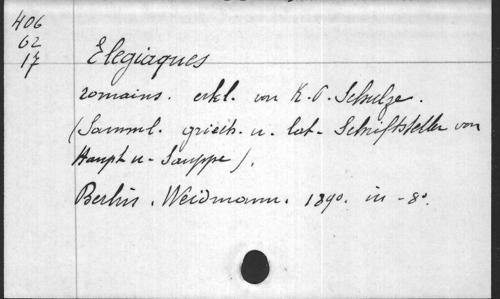 406
62
17
Elegiaques
romains. erkl. von K. P. Schulze.
(Samml. griech. u. lat. Schriftsteller von
Haupt u. Sauppe).
Berlin. Weidmann. 1890. in-8º.